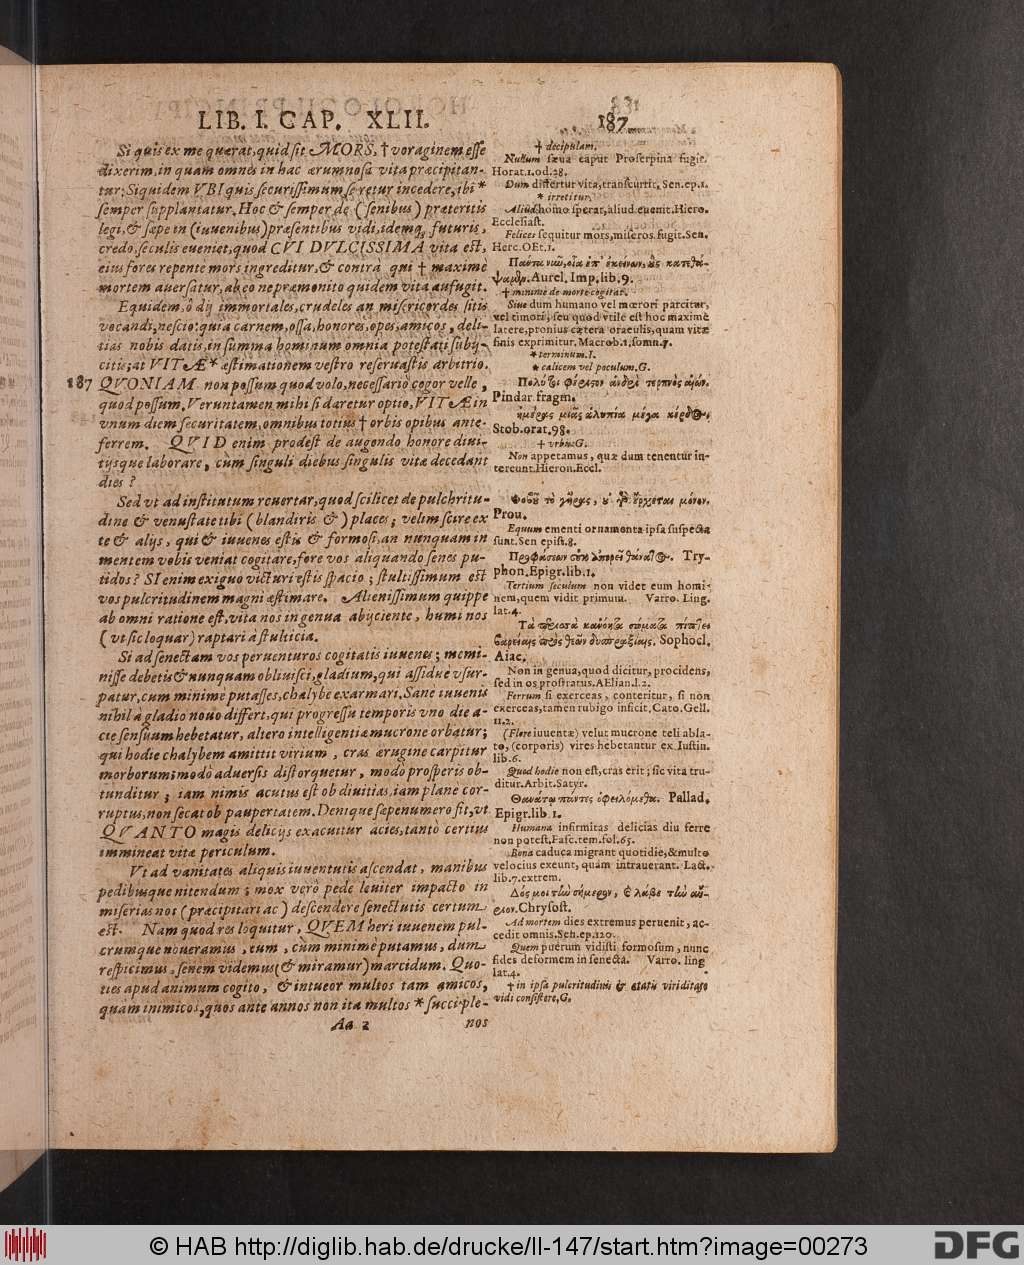 LIB. I. CAP. XLII.
187
Si quis ex me quærat, quid sit MORS, † voraginem esse
dixerim, in quam omnes in hac ærumnosa vita præcipitan-
tur: Siquidem VBI quis securissimum se retur incedere, ibi *
semper supplantatur. Hoc & semper de (senibus) præteritis
legi, & sæpe in (iuuenibus) præsentibus vidi, idemq; futuris,
credo, seculis eueniet, quod CVI DVLCISSIMA vita est,
eius fores repente mors ingreditur, & contrà qui † maximè
mortem auersatur, ab eo nepræmonito quidem vita aufugit.
Equidem, ô dij immortales, crudeles an misericordes sitis
vocandi, nescio: quia carnem, ossa, honores, opes, amicos, deli-
tias nobis datis, in summa hominum omnia potestati subij-
citis; at VITÆ * æstimationem vestro reseruastis arbitrio.
187 QVONIAM non possum quod volo, necessario cogor velle,
quod possum. Veruntamen mihi si daretur optio, VITÆ in
vnum diem securitatem, omnibus totius † orbis opibus ante-
ferrem. QVID enim prodest de augendo honore diui-
tijsque laborare, cùm singuli diebus singulis vitæ decedant
dies?
Sed vt ad institutum reuertar, quod scilicet de pulchritu-
dine & venustate tibi (blandiris &) places; velim scire ex
te & alijs, qui & iuuenes estis & formosi, an nunquam in
mentem vobis veniat cogitare, fore vos aliquando senes pu-
tidos? SI enim exiguo victuri estis spacio; stultissimum est
vos pulcritudinem magni æstimare. Alienissimum quippe
ab omni ratione est, vita nos in genua abijciente, humi nos
(vt sic loquar) raptari à stulticia.
Si ad senectam vos peruenturos cogitatis iuuenes; memi-
nisse debetis & nunquam obliuisci, gladium, qui assiduè vsur-
patur, cum minimè putasses, chalybe exarmari. Sane iuuenis
nihil à gladio nouo differt, qui progressu temporis vno die a-
cie sensuum hebetatur, altero intelligentiæ mucrone orbatur;
qui hodie chalybem amittit virium, cras ærugine carpitur
morborum; modò aduersis distorquetur, modò prosperis ob-
tunditur; iam nimis acutus est ob diuitias, iam plane cor-
ruptus, non secat ob paupertatem. Denique sæpenumero fit, vt
QVANTO magis delicijs exacuitur acies, tantò certius
immineat vitæ periculum.
Vt ad vanitates aliquis iuuentutis ascendat, manibus
pedibusque nitendum; mox verò pede leuiter impacto in
miserias nos (præcipitari ac) descendere senectutis certum
est. Nam quod res loquitur, QVEM heri iuuenem pul-
crumque noueramus, eum, cùm minimè putamus, dum
respicimus, senem videmus (& miramur) marcidum. Quo-
ties apud animum cogito, & intueor multos tam amicos,
quàm inimicos, quos ante annos non ita multos * succi ple-
Aa 2 nos
† decipulam.
Nullum sæua caput Proserpina fugit.
Horat. 1. od. 28.
Dum differtur vita, transcurrit. Sen. ep. 1.
* irretitur.
Aliud homo sperat, aliud euenit. Hiero.
Ecclesiast.
Felices sequitur mors, miseros fugit. Sen.
Herc. OEt. 1.
Aurel. Imp. lib. 9.
† minimè de morte cogitat.
Siue dum humano vel mœrori parcitur,
vel timori; seu quod vtile est hoc maximè
latere, pronius cætera oraculis, quam vitæ
finis exprimitur. Macrob. 1. somn. 7.
* terminum. I.
* calicem vel poculum. G.
Pindar. fragm.
Stob. orat. 98.
† vrbis. G.
Non appetamus, quæ dum tenentur in-
tereunt. Hieron. Eccl.
Prou.
Equum ementi ornamenta ipsa suspecta
sunt. Sen epist. 8.
Try-
phon. Epigr. lib. 1.
Tertium seculum non videt eum homi-
nem, quem vidit primum. Varro. Ling.
lat. 4.
Sophocl.
Aiac.
Non in genua, quod dicitur, procidens,
sed in os prostratus. AElian. l. 2.
Ferrum si exerceas, conteritur, si non
exerceas, tamen rubigo inficit. Cato. Gell.
11. 2.
(Flore iuuentæ) velut mucrone teli abla-
to, (corporis) vires hebetantur ex Iustin.
lib. 6.
Quod hodie non est, cras erit; sic vita tru-
ditur. Arbit. Satyr.
Θανάτῳ πάντες ὀφειλόμεθα. Pallad.
Epigr. lib. 1.
Humana infirmitas delicias diu ferre
non potest. Fasc. tem. fol. 65.
Bona caduca migrant quotidie, & multo
velocius exeunt, quàm intrauerant. Lact.
lib. 7. extrem.
Δός μοι τὴν σήμερον, & λάβε τὴν αὔ-
ριον. Chrysost.
Ad mortem dies extremus peruenit, ac-
cedit omnis. Sen. ep. 120.
Quem puerum vidisti formosum, nunc
fides deformem in senecta. Varro. ling
lat. 4.
† in ipsa pulcritudinis & ætatis viriditate
vidi consistere, G.
© HAB http://diglib.hab.de/drucke/li-147/start.htm?image=00273
DFG